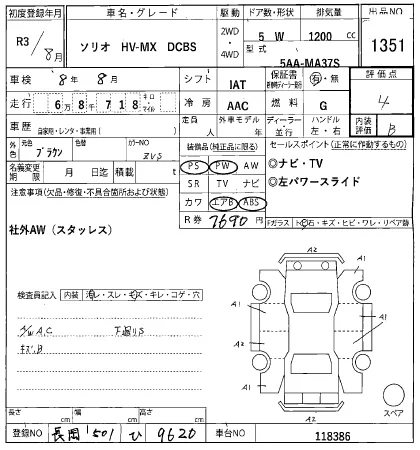 初度登録年月 車名・グレード 駆動 ドア数・形状 排気量 出品NO
R3/8月 ソリオ HV-MX DCBS 2WD・4WD 5 W 1200 cc 1351
型式 5AA-MA37S
車検 8年 8月 シフト IAT 保証書 有・無 評価点
走行 6万8千718 キロ・マイル 冷房 AAC 燃料 G 4
車歴 自家用・レンタ・事業用( ) 定員 人 外車モデル 年 ディーラー・並行 ハンドル 左・右 内装評価 B
外色 元色 ブラウン 色替 カラーNO ZVS 装備品(純正品に限る) セールスポイント(正常に作動するもの)
名義変更期限 月 日 積載 t PS PW AW ◎ナビ・TV
注意事項(欠品・修復・不具合箇所および状態) SR TV ナビ ◎左パワースライド
カワ エアB ABS
社外AW(スタッレス) R券 7690円 Fガラス トビ石・キズ・ヒビ・ワレ・リペア跡
A2
A1 A1
検査員記入 内装 汚レ・スレ・キズ・キレ・コゲ・穴
A1 A1
A.C 下廻りS
キズ.B
A2 A1
A2
スペア
長さ cm 幅 cm 高さ cm
登録NO 長岡 501 ひ 9620 車台NO 118386